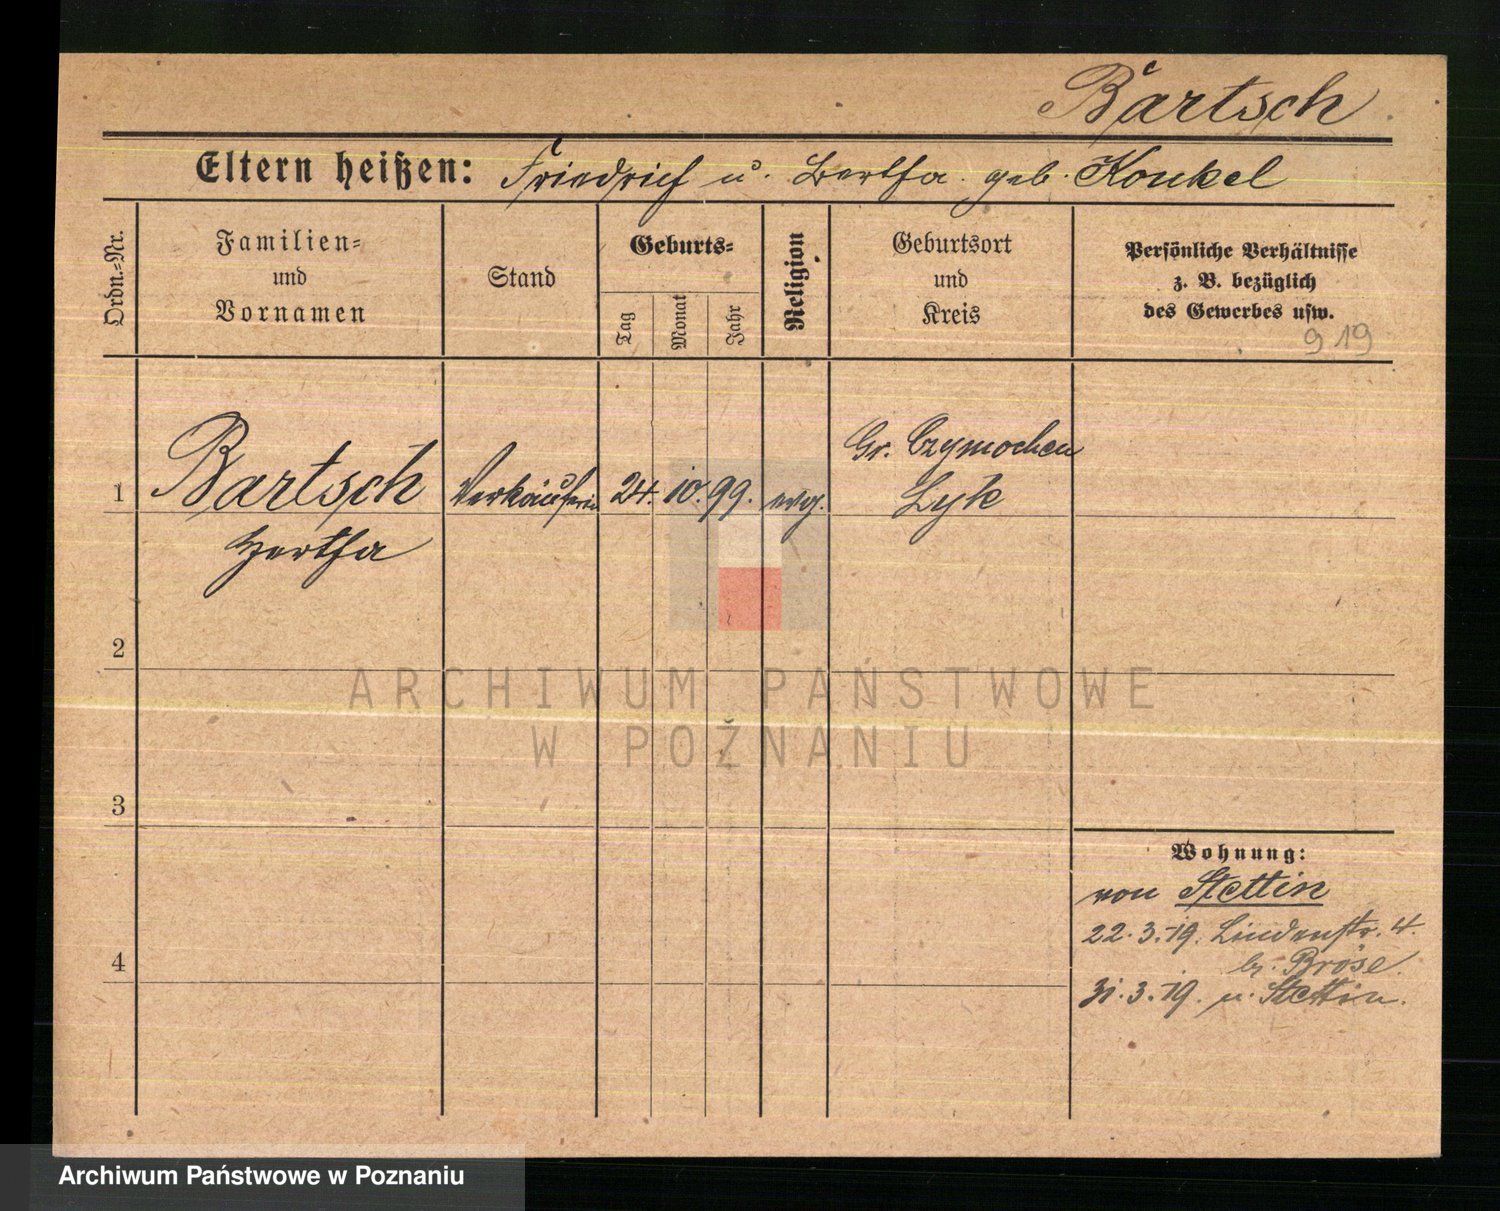 Bartsch
Eltern heißen: Friedrich u. Bertha geb. Konkel
Ordn.-Nr.
Familien-
und
Vornamen
Stand
Geburts-
Tag
Monat
Jahr
Religion
Geburtsort
und
Kreis
Persönliche Verhältnisse
z. B. bezüglich
des Gewerbes usw.
9 19
1 Bartsch Verkäuferin 24. 10. 99. evg. Gr. Czymochen
Lyk
Hertha
2
3
4
Wohnung:
von Stettin
22.3.19. Lindenstr. 4.
b. Bröse.
31.3.19. n. Stettin.
ARCHIWUM PAŃSTWOWE
W POZNANIU
Archiwum Państwowe w Poznaniu